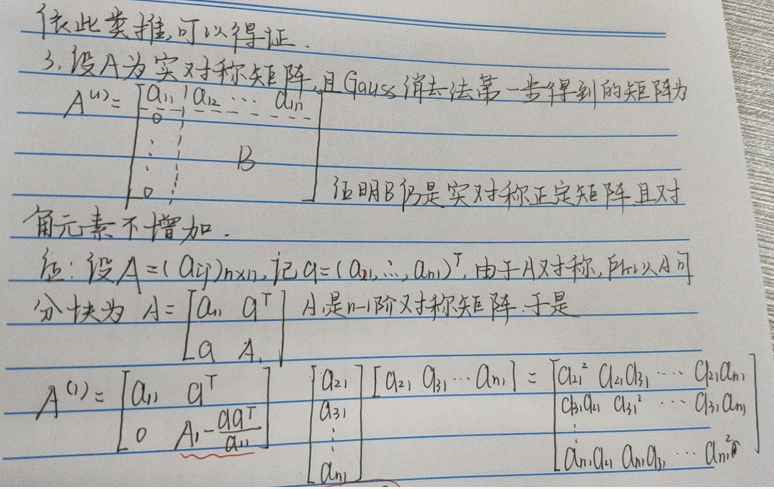 依此类推,可以得证.
3. 设A为实对称矩阵,且Gauss消去法第一步得到的矩阵为
A⁽¹⁾= [a₁₁ a₁₂ ⋯ a₁ₙ
0
⋮ B
0] 证明B仍是实对称正定矩阵且对
角元素不增加.
证: 设A=(aᵢⱼ)ₙₓₙ, 记a=(a₂₁,⋯,aₙ₁)ᵀ, 由于A对称,所以A可
分块为 A= [a₁₁ aᵀ
a A₁] A₁是n-1阶对称矩阵.于是
A⁽¹⁾= [a₁₁ aᵀ
0 A₁-aaᵀ/a₁₁] [a₂₁
a₃₁
⋮
aₙ₁] [a₂₁ a₃₁ ⋯ aₙ₁] = [a₂₁² a₂₁a₃₁ ⋯ a₂₁aₙ₁
a₃₁a₂₁ a₃₁² ⋯ a₃₁aₙ₁
⋮
aₙ₁a₂₁ aₙ₁a₃₁ ⋯ aₙ₁²]